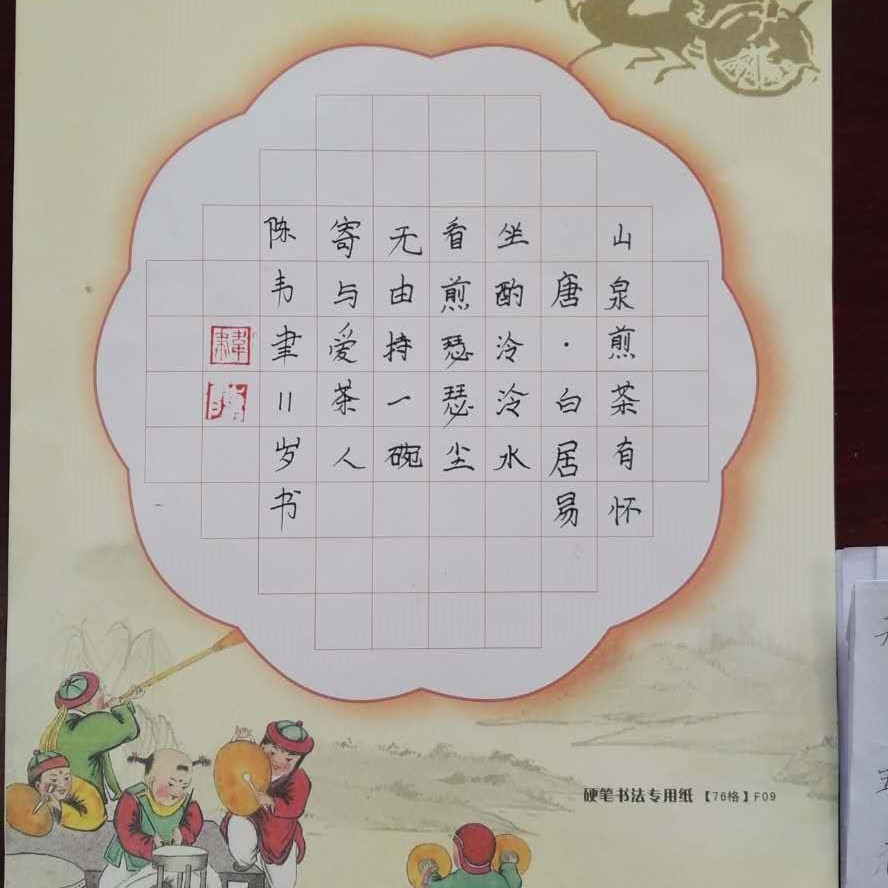 山泉煎茶有怀
唐·白居易
坐酌泠泠水
看煎瑟瑟尘
无由持一碗
寄与爱茶人
陈韦聿11岁书
硬笔书法专用纸【76格】F09